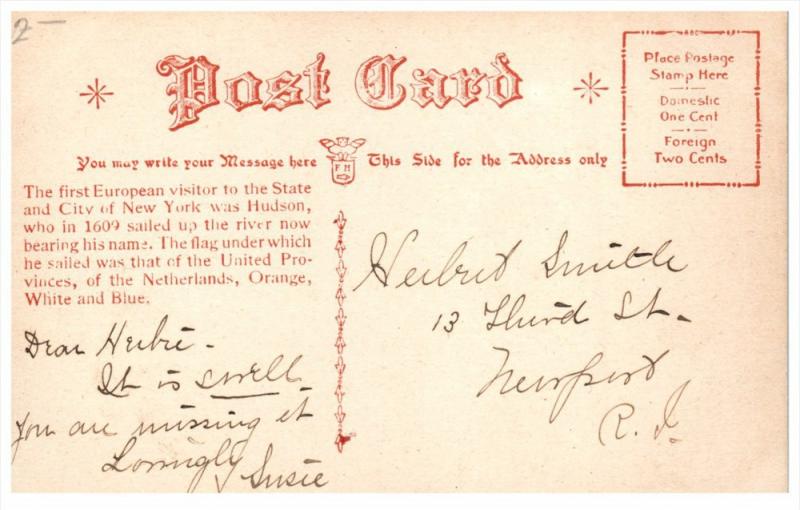 2-
Post Card
Place Postage
Stamp Here
Domestic
One Cent
Foreign
Two Cents
You may write your Message here
F H
This Side for the Address only
The first European visitor to the State
and City of New York was Hudson,
who in 1609 sailed up the river now
bearing his name. The flag under which
he sailed was that of the United Pro-
vinces, of the Netherlands, Orange,
White and Blue.
Dear Herbie -
It is swell.
You are missing it
Lovingly
Susie
Herbert Smith
13 Third St.
Newport
R. I.